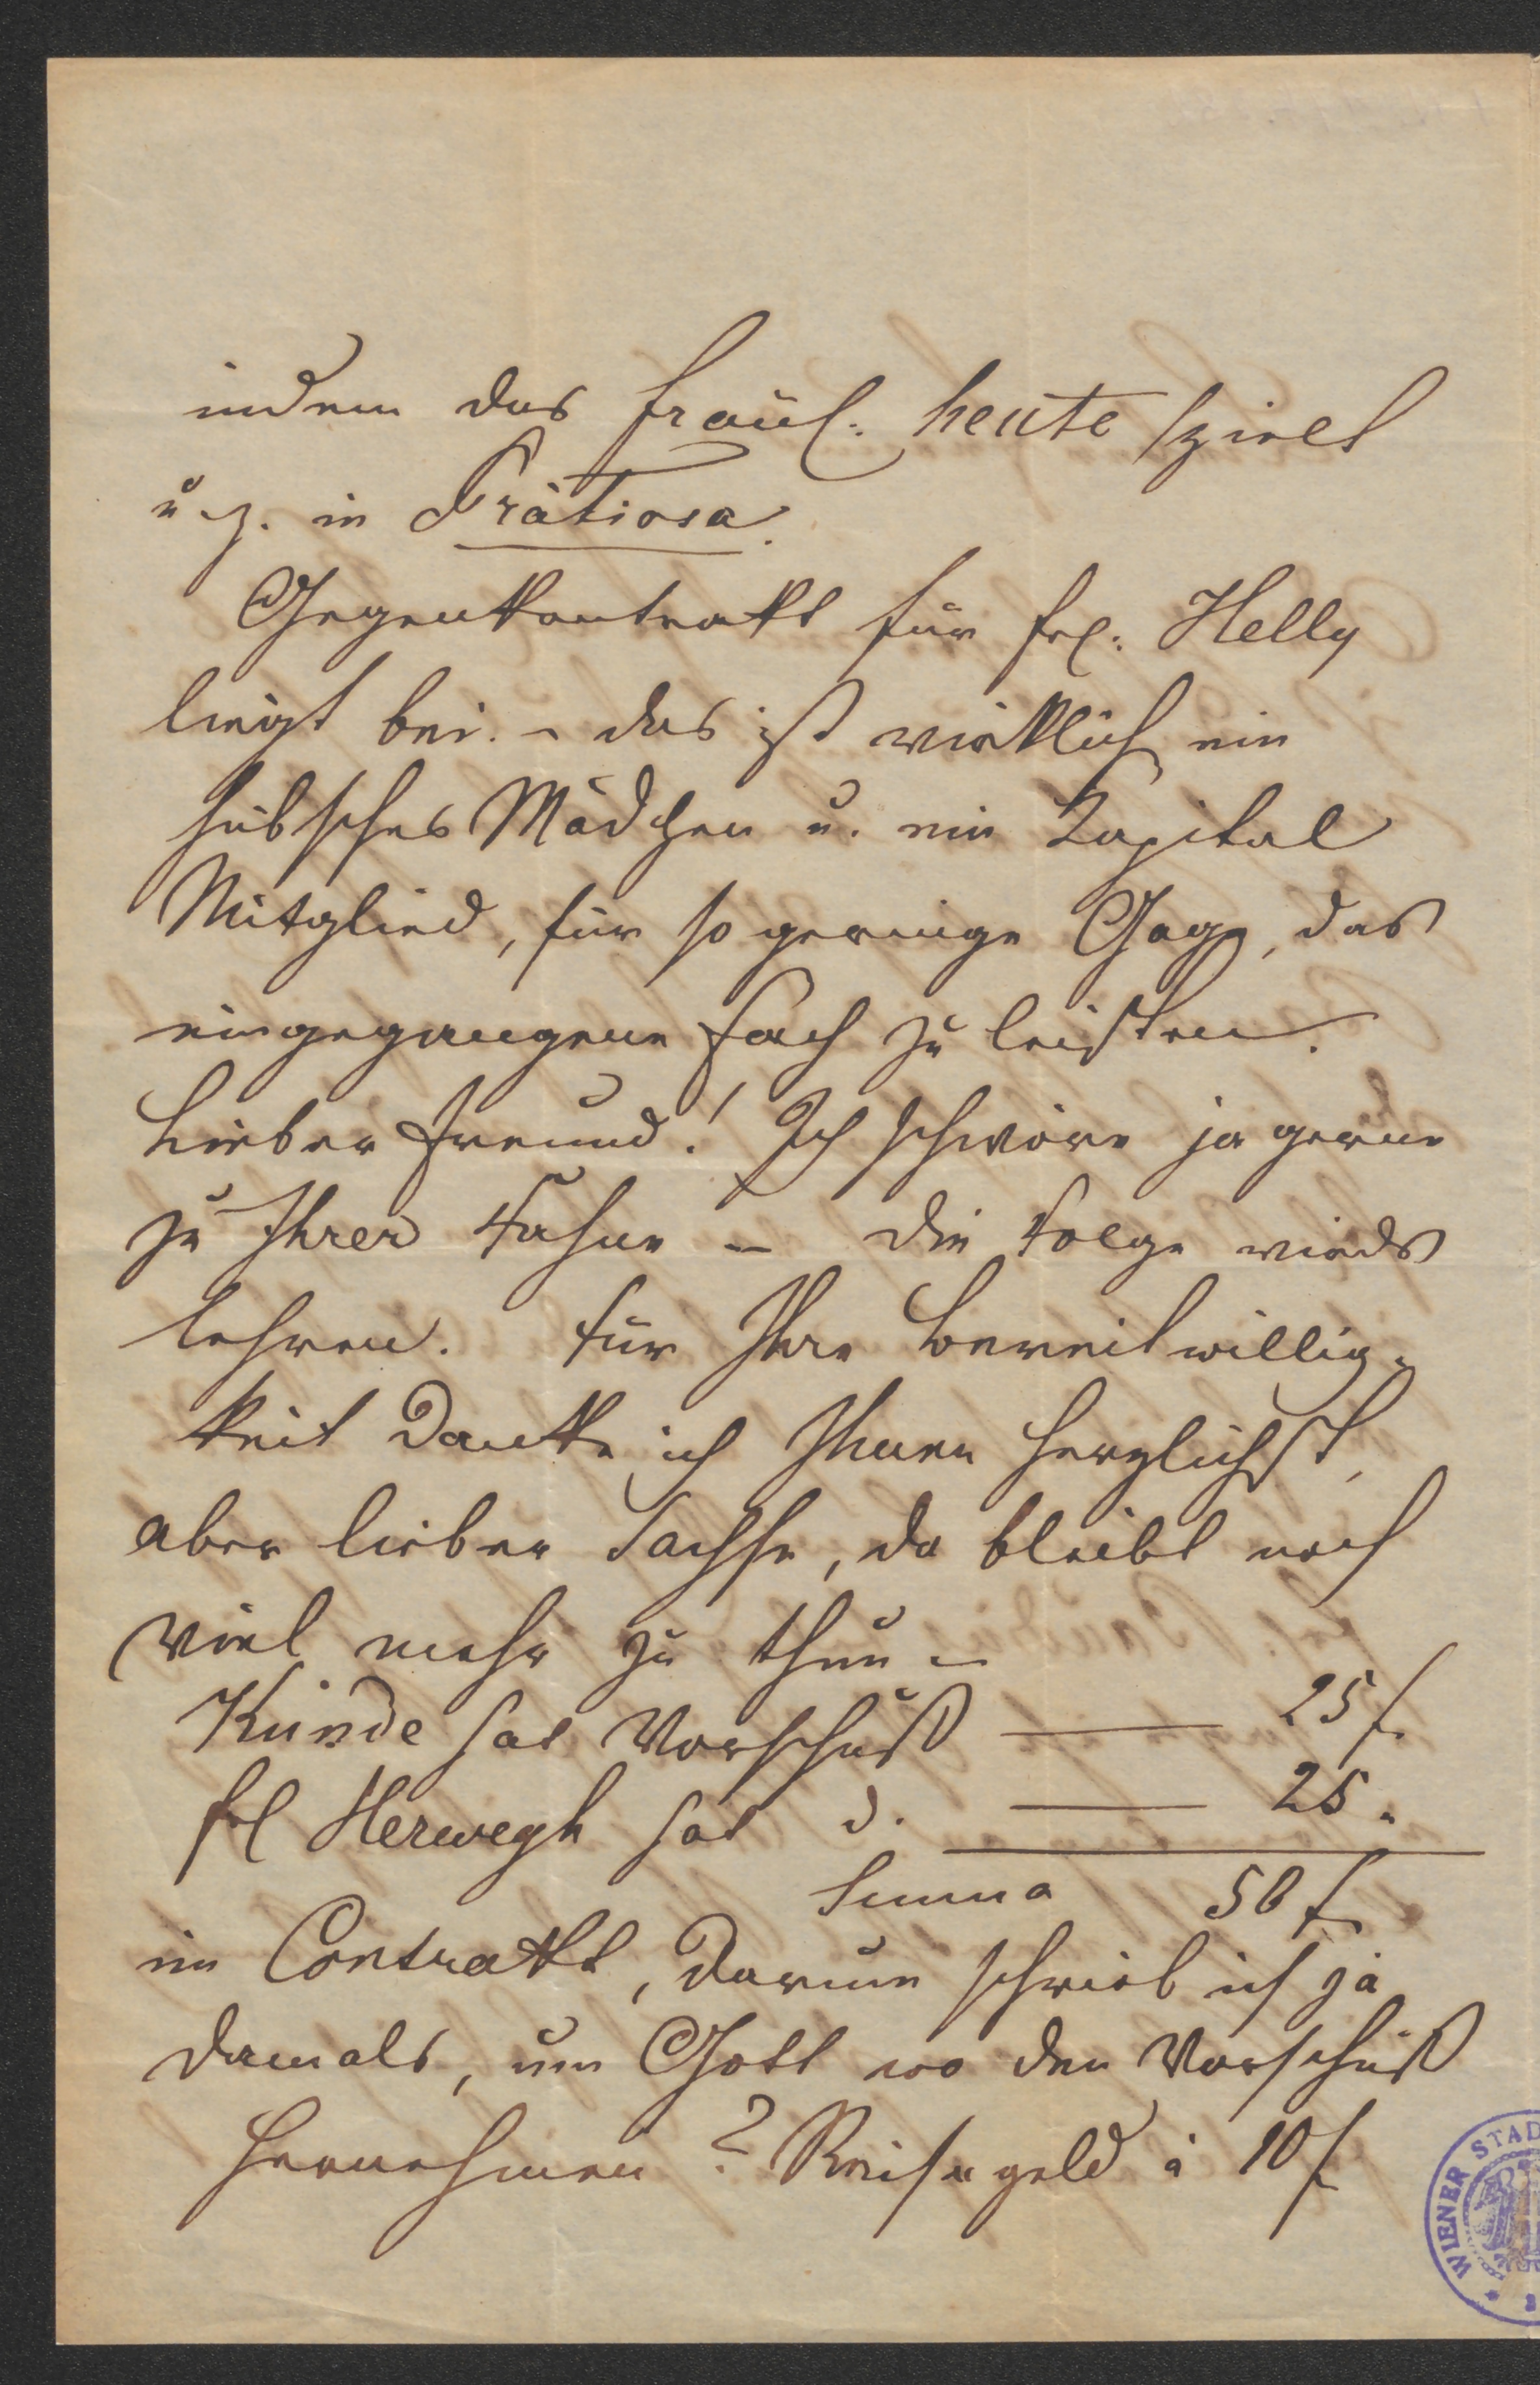 indem das Fräul. heute spielt
u. z. in Prätiosa.
Gegenkontrakt für Frl. Helly
liegt bei. – das ist wirklich ein
hübsches Mädchen u. ein Kapital
Mitglied, für so geringe Gage, das
eingegangene Fach zu leisten.
Lieber Freund! Ich schwöre ja gerne
zu Ihrer Fahne – die Folge wirds
lehren. Für Ihre Bereitwillig-
keit danke ich Ihnen herzlichst,
aber lieber Sachse, da bleibt noch
viel mehr zu thun –
Kunde hat Vorschuß — 25 f.
Frl Herwegh hat d. — 25 "
Summa 50 f
im Contrakt, darum schrieb ich ja
damals, um Gott wo den Vorschuß
hernehmen? Reisegeld à 10 f
WIENER STAD